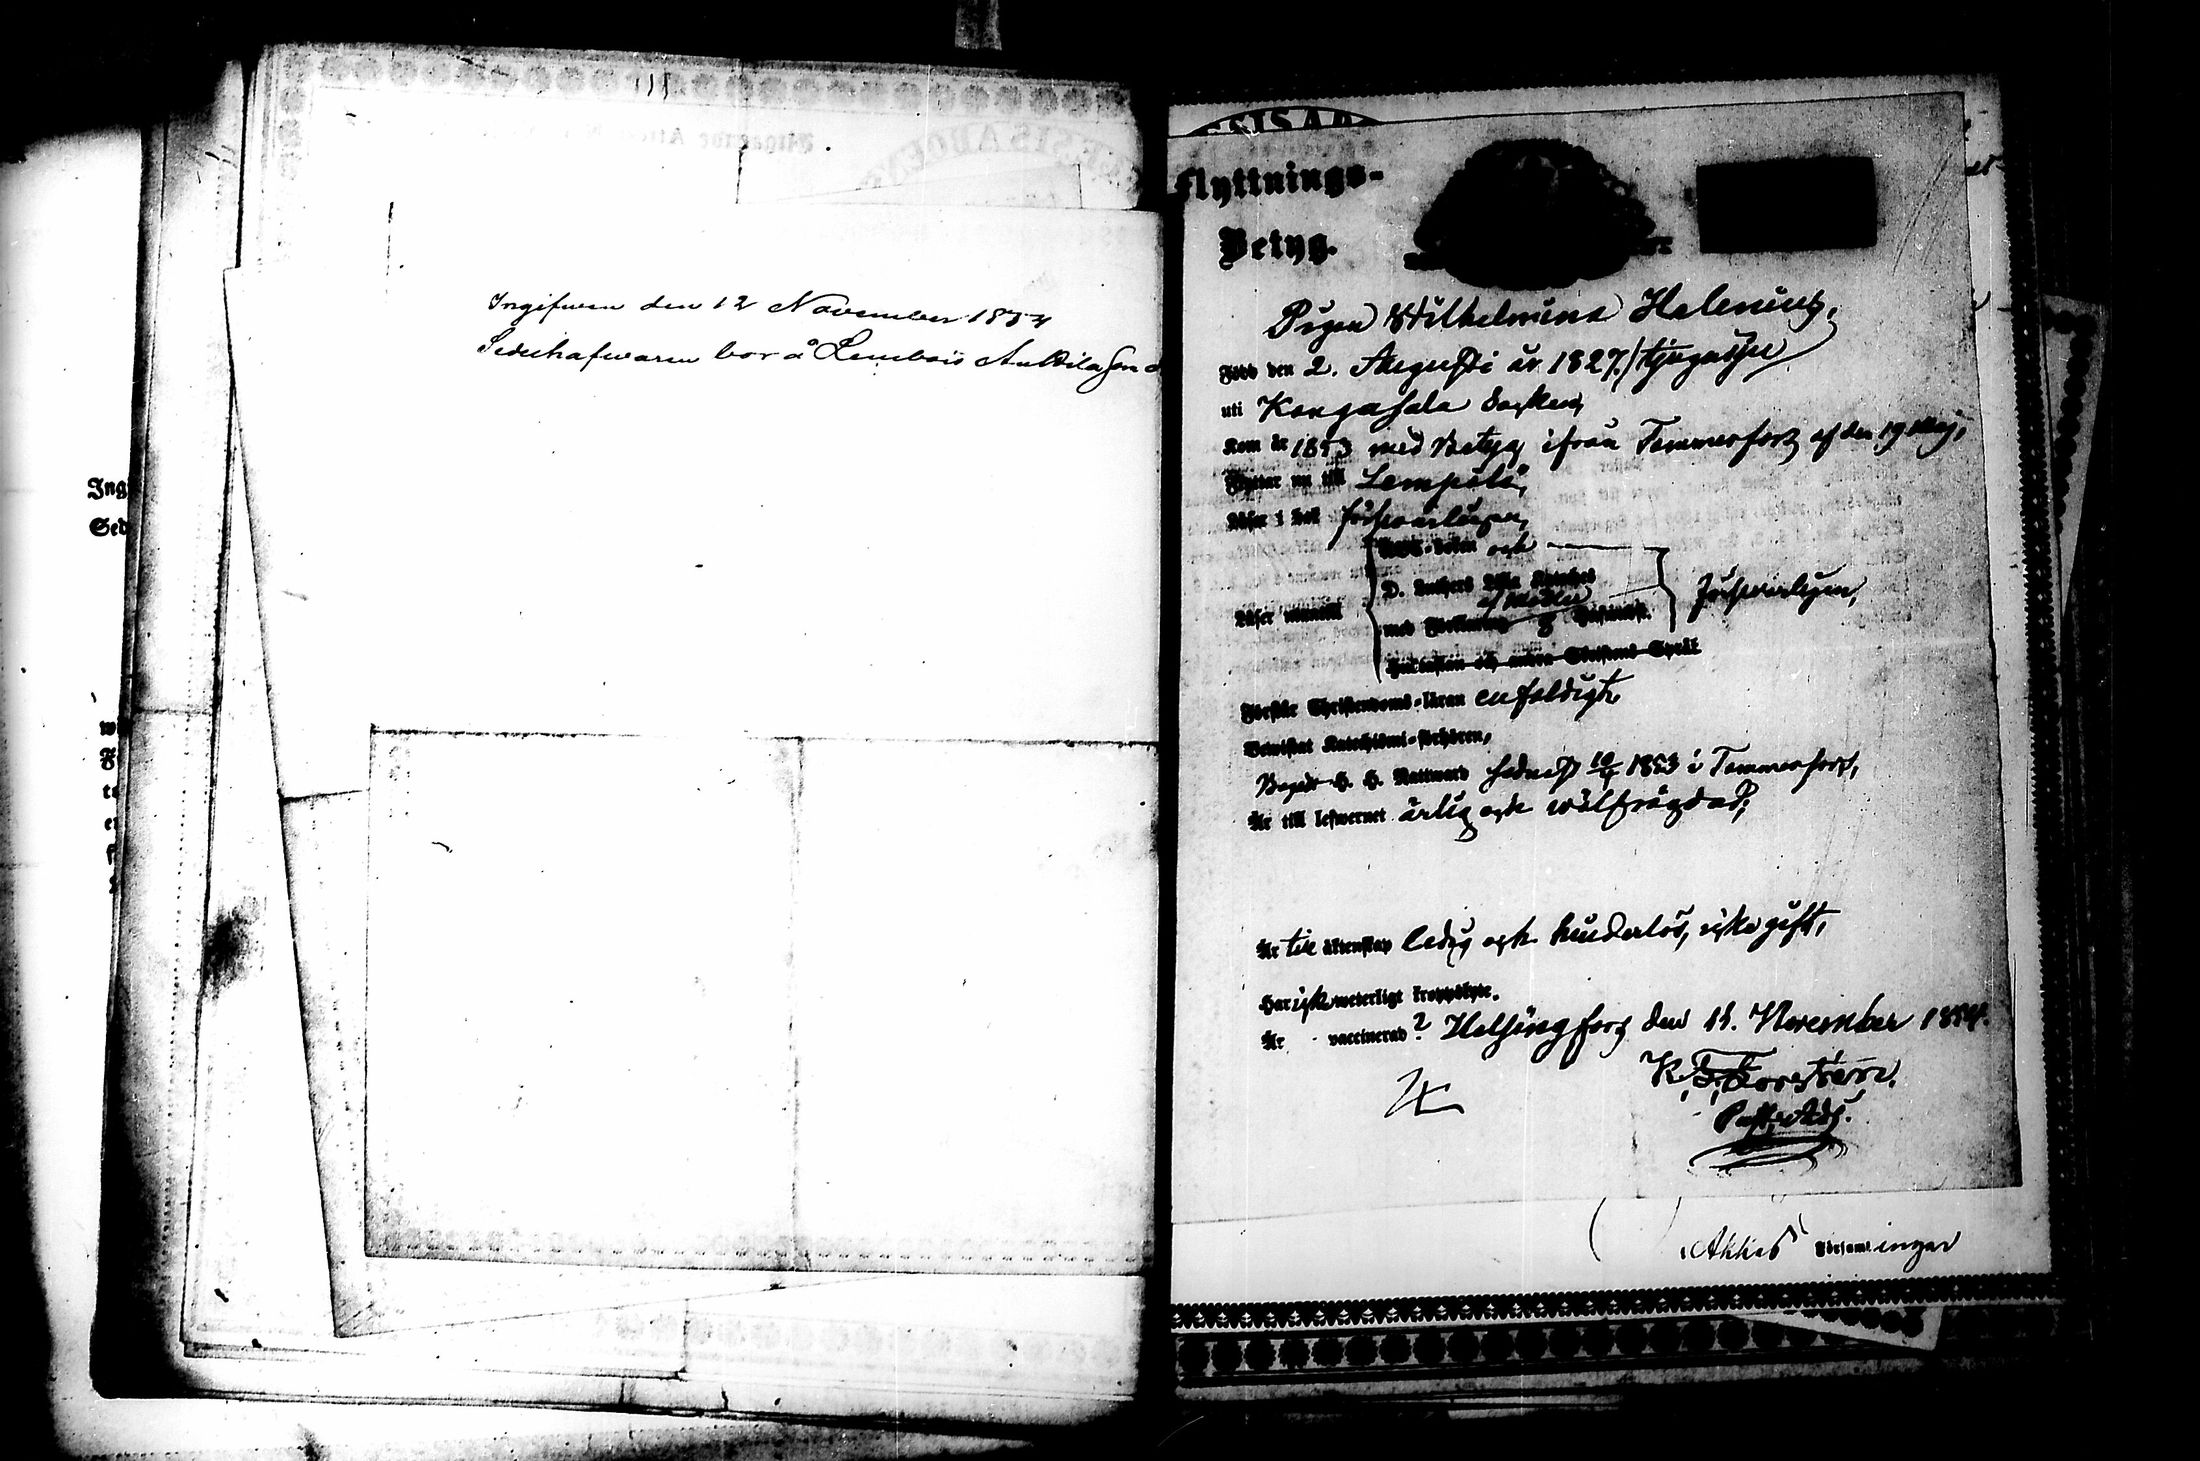 Ingifwen den 12 November 1854
Sedelhafwaren bor å Lembois Anttila
Flyttnings-
Betyg.
Pigan Wilhelmina Helenius,
Född den 2. Augusti år 1827./tjugusju/
uti Kangasala Socken,
Kom år 1853 med Betyg ifrån Tammerfors af den 19 Maj,
Flyttar nu till Lempälä,
Läser i bok försvarligen,
ABC-boken och
D. Luthers Lilla Kateches
af Möller
Läser innantill
med Förklaring och Hustafla.
försvarligen,
Förstår Christendoms-läran enfaldigt,
Bewistat Katechismi-förhören,
Begått H. H. Nattward sednast 1853 i Tammerfors,
Är till lefwernet ärlig och wälfrägdad;
Är till äktenskap ledig och hinderlös, icke gift,
Har icke weterligt kroppslyte.
Är vaccinerad? Helsingfors den 11. November 1854.
K. F. Forsström,
Past. Adj.
Akkas Församlingar
Ing
Sed